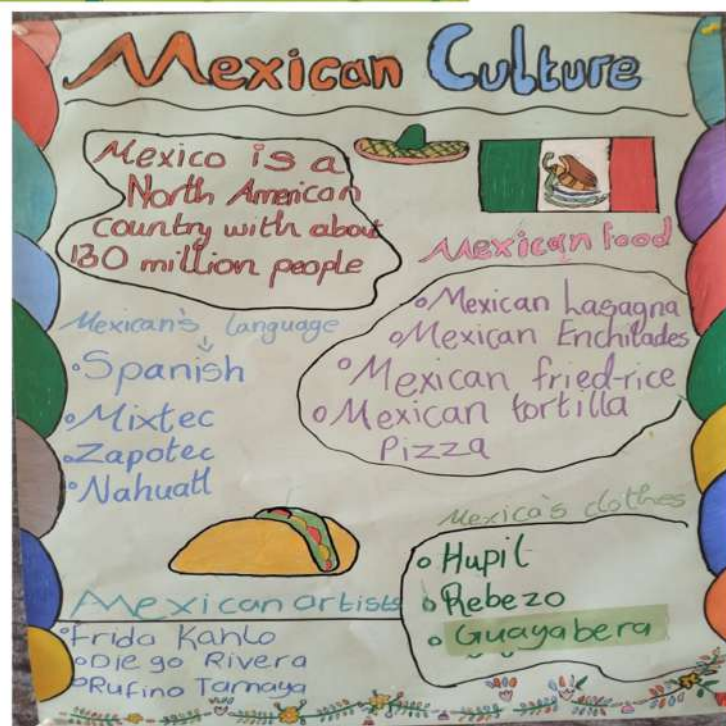 Mexican Culture
Mexico is a
North American
country with about
130 million people
Mexican food
Mexican Lasagna
Mexican Enchilades
Mexican fried-rice
Mexican tortilla
Pizza
Mexican's language
Spanish
Mixtec
Zapotec
Nahuatl
Mexica's clothes
Hupil
Rebezo
Guayabera
Mexican artists
Frida Kahlo
Diego Rivera
Rufino Tamaya